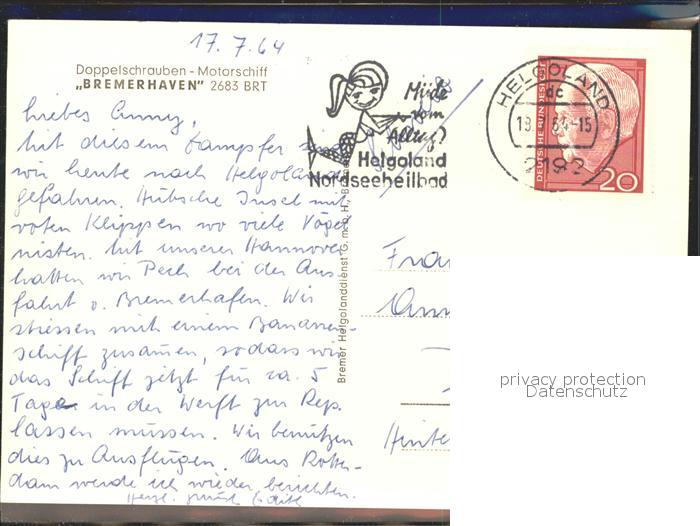 17. 7. 64
Doppelschrauben - Motorschiff
„BREMERHAVEN" 2683 BRT
Müde
vom
Alltag?
Helgoland
Nordseeheilbad
HELGOLAND
dc
19. 64-15
2192
DEUTSCHE BUNDESPOST
20
Liebes Anny,
Mit diesem Dampfer sind
wir heute nach Helgoland
gefahren. Hübsche Insel mit
roten Klippen wo viele Vögel
nisten. Mit unserer Hannover
hatten wir Pech bei der Aus-
fahrt v. Bremerhafen. Wir
stiessen mit einem Bananen-
schiff zusamen, sodass wir
das Schiff jetzt für ca. 5
Tage in der Werft zur Rep.
lassen müssen. Wir benützen
dies zu Ausflügen. Aus Rotter-
dam werde ich wieder berichten.
Herzl. Edith
Bremer Helgolanddienst G.m.b.H.,
Frau
Ann
Hinter
privacy protection
Datenschutz